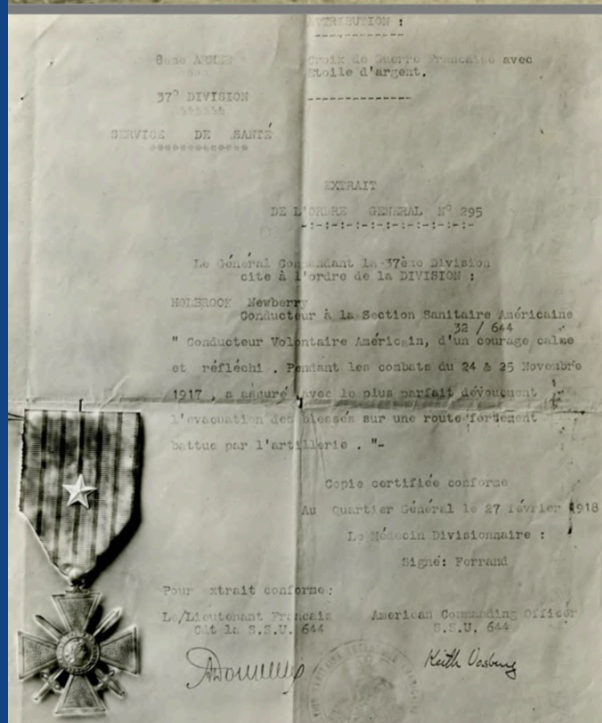 ATTRIBUTION :
8ème ARMEE
Croix de Guerre Francaise avec
Etoile d'argent.
37° DIVISION
SERVICE DE SANTÉ
EXTRAIT
DE L'ORDRE GENERAL N° 295
Le Général Commandant la 37ème Division
cite à l'ordre de la DIVISION :
HOLBROOK Newberry
Conducteur à la Section Sanitaire Américaine
32 / 644
" Conducteur Volontaire Américain, d'un courage calme
et réfléchi . Pendant les combats du 24 & 25 Novembre
1917 , a assuré avec le plus parfait dévouement
l'evacuation des blessés sur une route fortement
battue par l'artillerie . "-
Copie certifiée conforme
Au Quartier Général le 27 février 1918
Le Médecin Divisionnaire :
Signé: Ferrand
Pour extrait conforme:
Le/Lieutenant Francais
American Commanding Officer
Cdt la S.S.U. 644
S.S.U. 644
Keith Vosburg